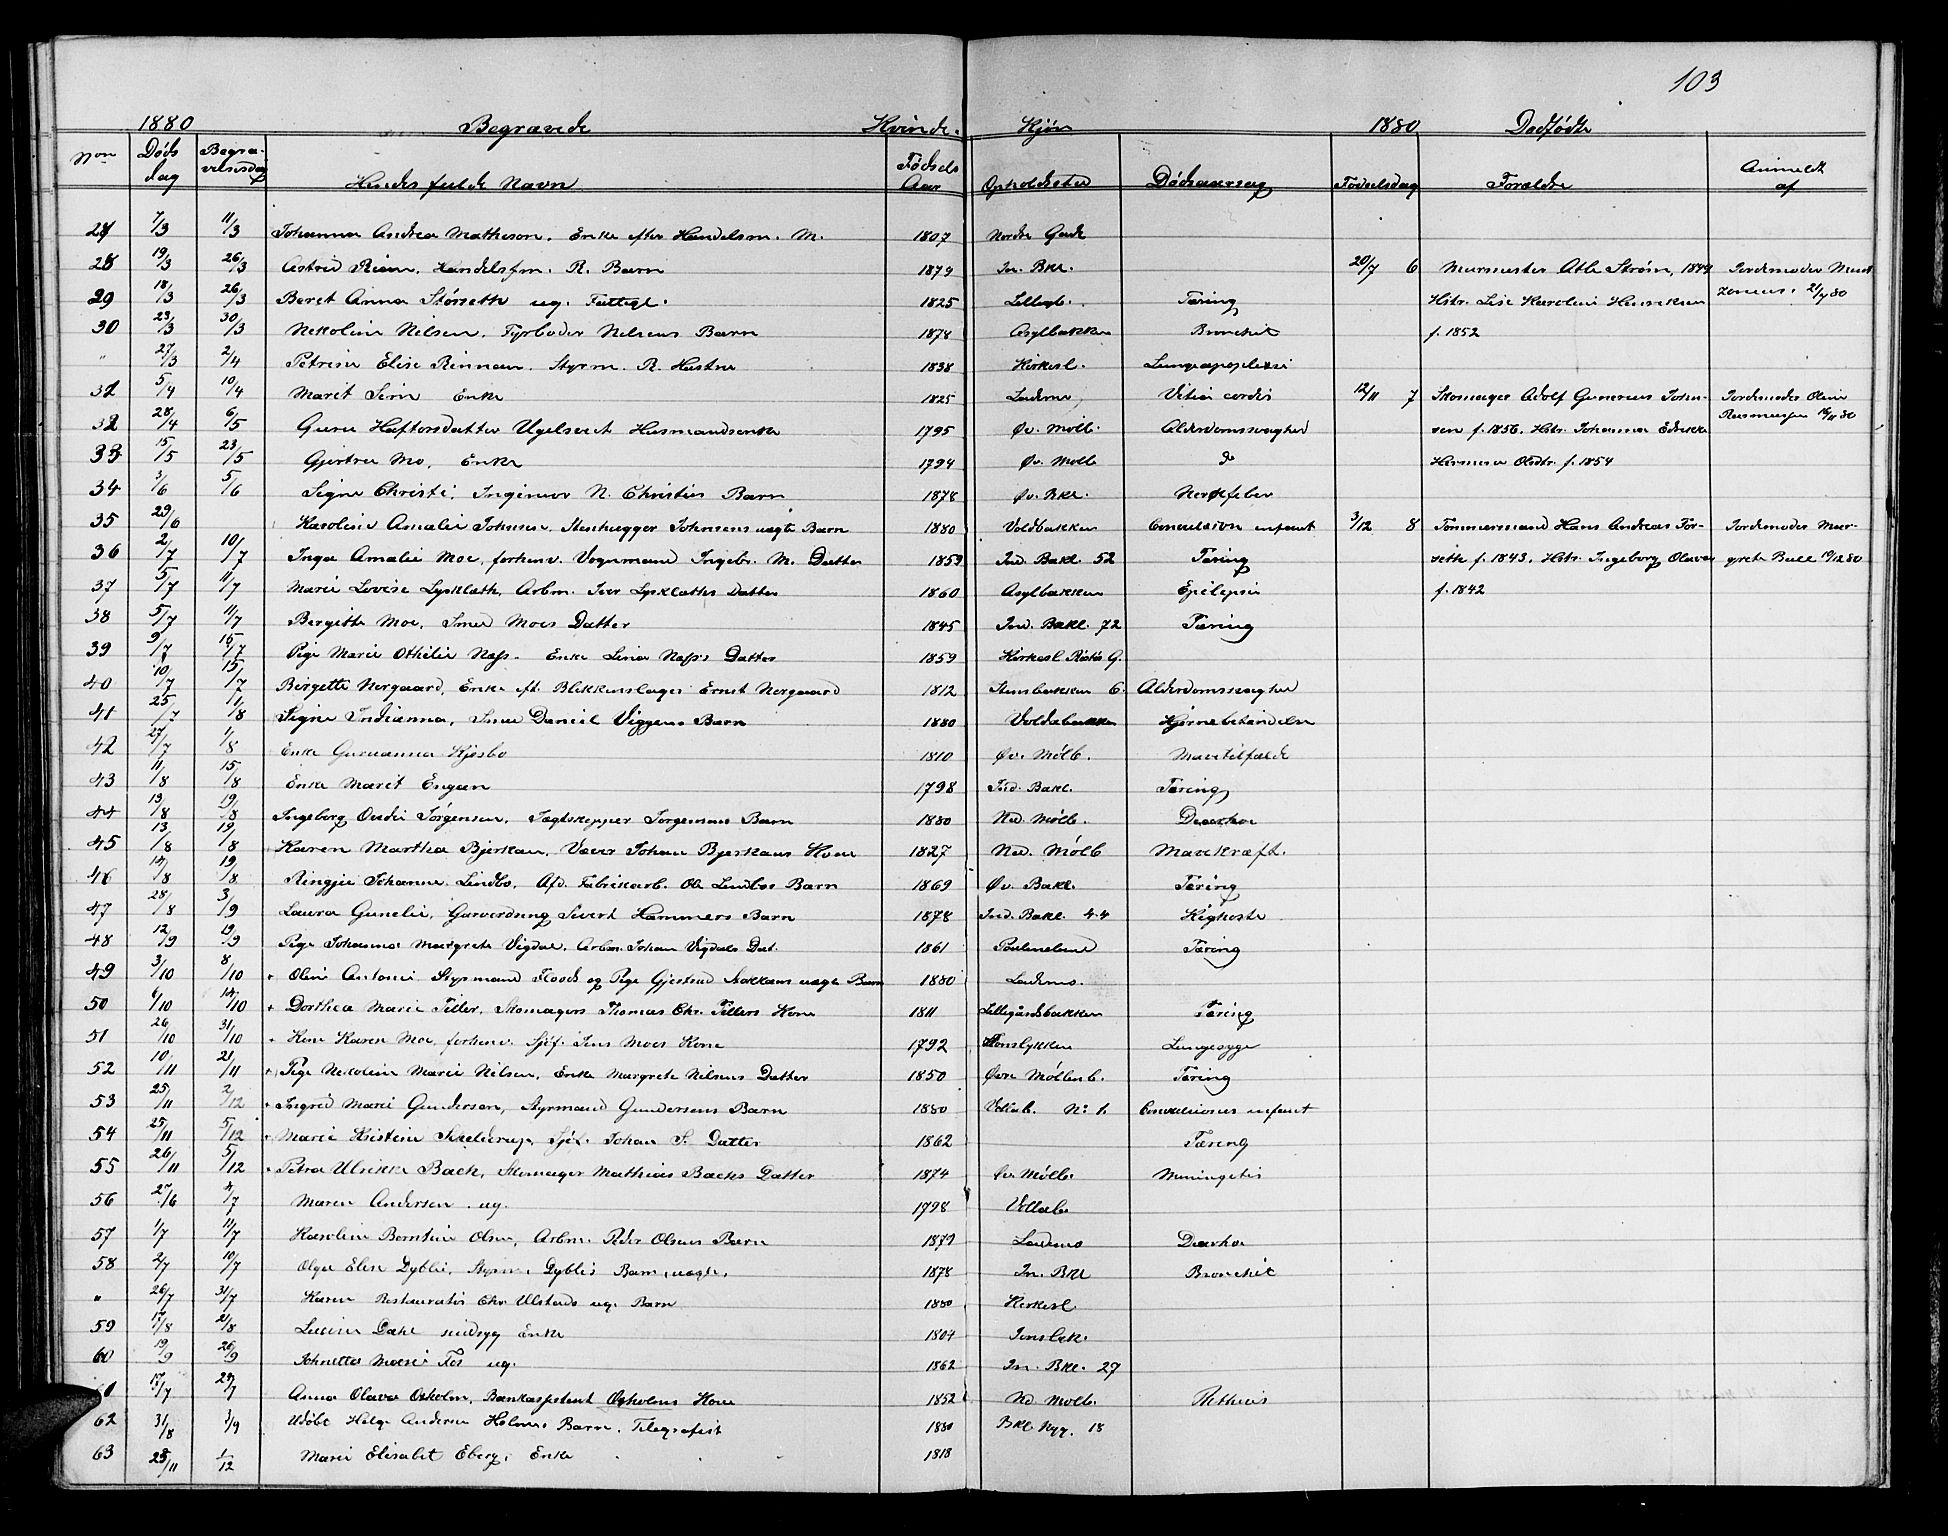 103
1880 Begravede Kvinde- Kjøn 1880 Dødfødte
Nr Døds dag Begravelsesdag Hendes fulde Navn Fødsels Aar Opholdssted Dødsaarsag Fødselsdag Forældre Anmeldt af
27 7/3 11/3 Johanna Andrea Matheson, Enke efter Handelsm. M. 1807 Nordre Gade
28 19/3 26/3 Astrid Riian, Handelsfm. R. Barn 1879 In. Bkl. 20/7 6 Murmester Atle Strøm, 1849 Jordemoder
29 18/3 26/3 Beret Anna Størseth ug. Fattigl. 1825 Lillegb. Tæring Hstr. Lise Karoline Henriksen
30 23/3 30/3 Nikoline Nilsen, Fyrbøder Nilsens Barn 1878 Asylbakken Bronchit f. 1852
" 27/3 2/4 Petrine Elise Rinnan, Styrm. R. Hustru 1838 Kirkesl. Lungeapoplexi
31 5/4 10/4 Marit Sirin Enke 1825 Lademo, Vitium cordis 12/11 7 Skomager Adolf Gunerius Johan- Jordemoder Oline
32 28/4 6/5 Guru Haftorsdatter Ugelseet Husmandsenke 1795 Øv. Mølb. Alderdomssvaghed sen f. 1856. Hstr. Johanna Edrikke Rasmussen
33 15/5 23/5 Gjertru Mo, Enke 1794 Øv. Molb do Hermana Olsdtr. f. 1854
34 3/6 5/6 Signe Christi, Ingeniør N. Christies Barn 1878 Øv. Bkl. Nervefeber
35 29/6 Karoline Amalie Johnsen, Stenhugger Johnsens uægte Barn 1880 Voldbakken Convulsion infant 3/12 8 Tømmermand Hans Andreas For- Jordemoder Mar-
36 2/7 10/7 Inga Amalie Moe, forhenv. Vognmand Ingebr. M. Datter 1859 Ind. Bakl. 52 Tæring seth f. 1843. Hstr. Ingeborg Olava grete Bull 19/12 80
37 5/7 11/7 Marie Lovise Lysklæth, Arbm. Iver Lysklættes Datter 1860 Asylbakken Epilepsi f. 1842
38 5/7 11/7 Bergitte Moe, Smed Moes Datter 1845 Ind. Bakl. 72 Tæring
39 9/7 15/7 Pige Marie Othilie Næss. Enke Lina Næss's Datter 1859 Kirkesl. G.
40 10/7 15/7 Birgette Norgaard, Enke eft. Blikkenslager Ernst Norgaard 1812 Stensbakken 6. Alderdomssvaghed
41 25/7 1/8 Signe Indianna, Smed Daniel Viggens Barn 1880 Voldabakken Hjernebetændelse
42 27/7 1/8 Enke Guruanna Kjøsbo 1810 Øv. Mølb. Mavetilfælde
43 11/8 15/8 Enke Marit Engan 1798 Ind. Bakl. Tæring
44 13/8 19/8 Ingeborg Ovidie Jørgensen, Jægtskipper Jørgensens Barn 1880 Nd. Mølb. Diarrhoe
45 13/8 19/8 Karen Martha Bjerkan, Væver Johan Bjerkans Kone 1827 Nd. Mølb Mavekræft.
46 14/8 19/8 Ringjei Johanne Lindbo, Afd. Fabrikarb. Ole Lindbos Barn 1869 Øv. Bakl. Tæring
47 28/8 3/9 Laura Gunelie, Garversvend Sivert Hammers Barn 1878 Ind. Bakl. 44 Kighoste
48 12/9 19/9 Pige Johanna Margrete Vigdal, Arbm. Johan Vigdals Dat. 1861 Tæring
49 3/10 8/10 + Oline Antonie Styrmand Floods og Pige Gjertrud Stokkans uægte Barn 1880 Lademo.
50 6/10 14/10 + Dorthea Marie Tiller, Skomagers Thomas Chr. Tillers Kone 1811 Lillegårdsbakken Tæring
51 26/10 31/10 + Kone Karen Moe, forhenv. Sjøf. Jens Moes Kone 1792 Lungesyge
52 10/11 21/11 + Pige Nikoline Marie Nilsen, Enke Margrete Nilsens Datter 1850 Øvr Møllenb. Tæring
53 25/11 2/12 + Ingrid Marie Gundersen, Styrmand Gundersens Barn 1880 Vollab. No 1. Convulsiones infant
54 25/11 5/12 + Marie Kristine Skjelderup, Sjøf. Johan S. Datter 1862 Tæring
55 26/11 5/12 + Petra Ulrikke Back, Skomager Mathias Backs Datter 1874 Øv. Mølb. Meningetis
56 27/6 4/7 Maren Andersen ug. 1798 Vollab
57 1/7 11/7 Karoline Berntine Olsen, Arbm. Peder Olsens Barn 1879 Lademo Diarrhoe
58 2/7 10/7 Olga Elise Dyblie, Styrm. Dyblies Barn, uægte. 1878 In. Bkl Bronchit
" 26/7 31/7 Karen Restauratør Chr. Ulstads ug. Barn 1880 Kirkesl.
59 17/8 21/8 Lucine Dahl sindsyg Enke 1804
60 19/9 26/9 Johnetta Marie Fos ug. 1862 In. Bkl. 27
61 17/7 29/7 Anna Olava Oxholm, Bankassistent Oxholms Kone 1852 Nd. Molb. Pthisis
62 31/8 1/9 Udøbt Helge Andersen Holmes Barn, Telegrafist 1880 Bkl. Nyg. 18
63 25/11 1/12 Marie Elisabet Eberg, Enke 1818